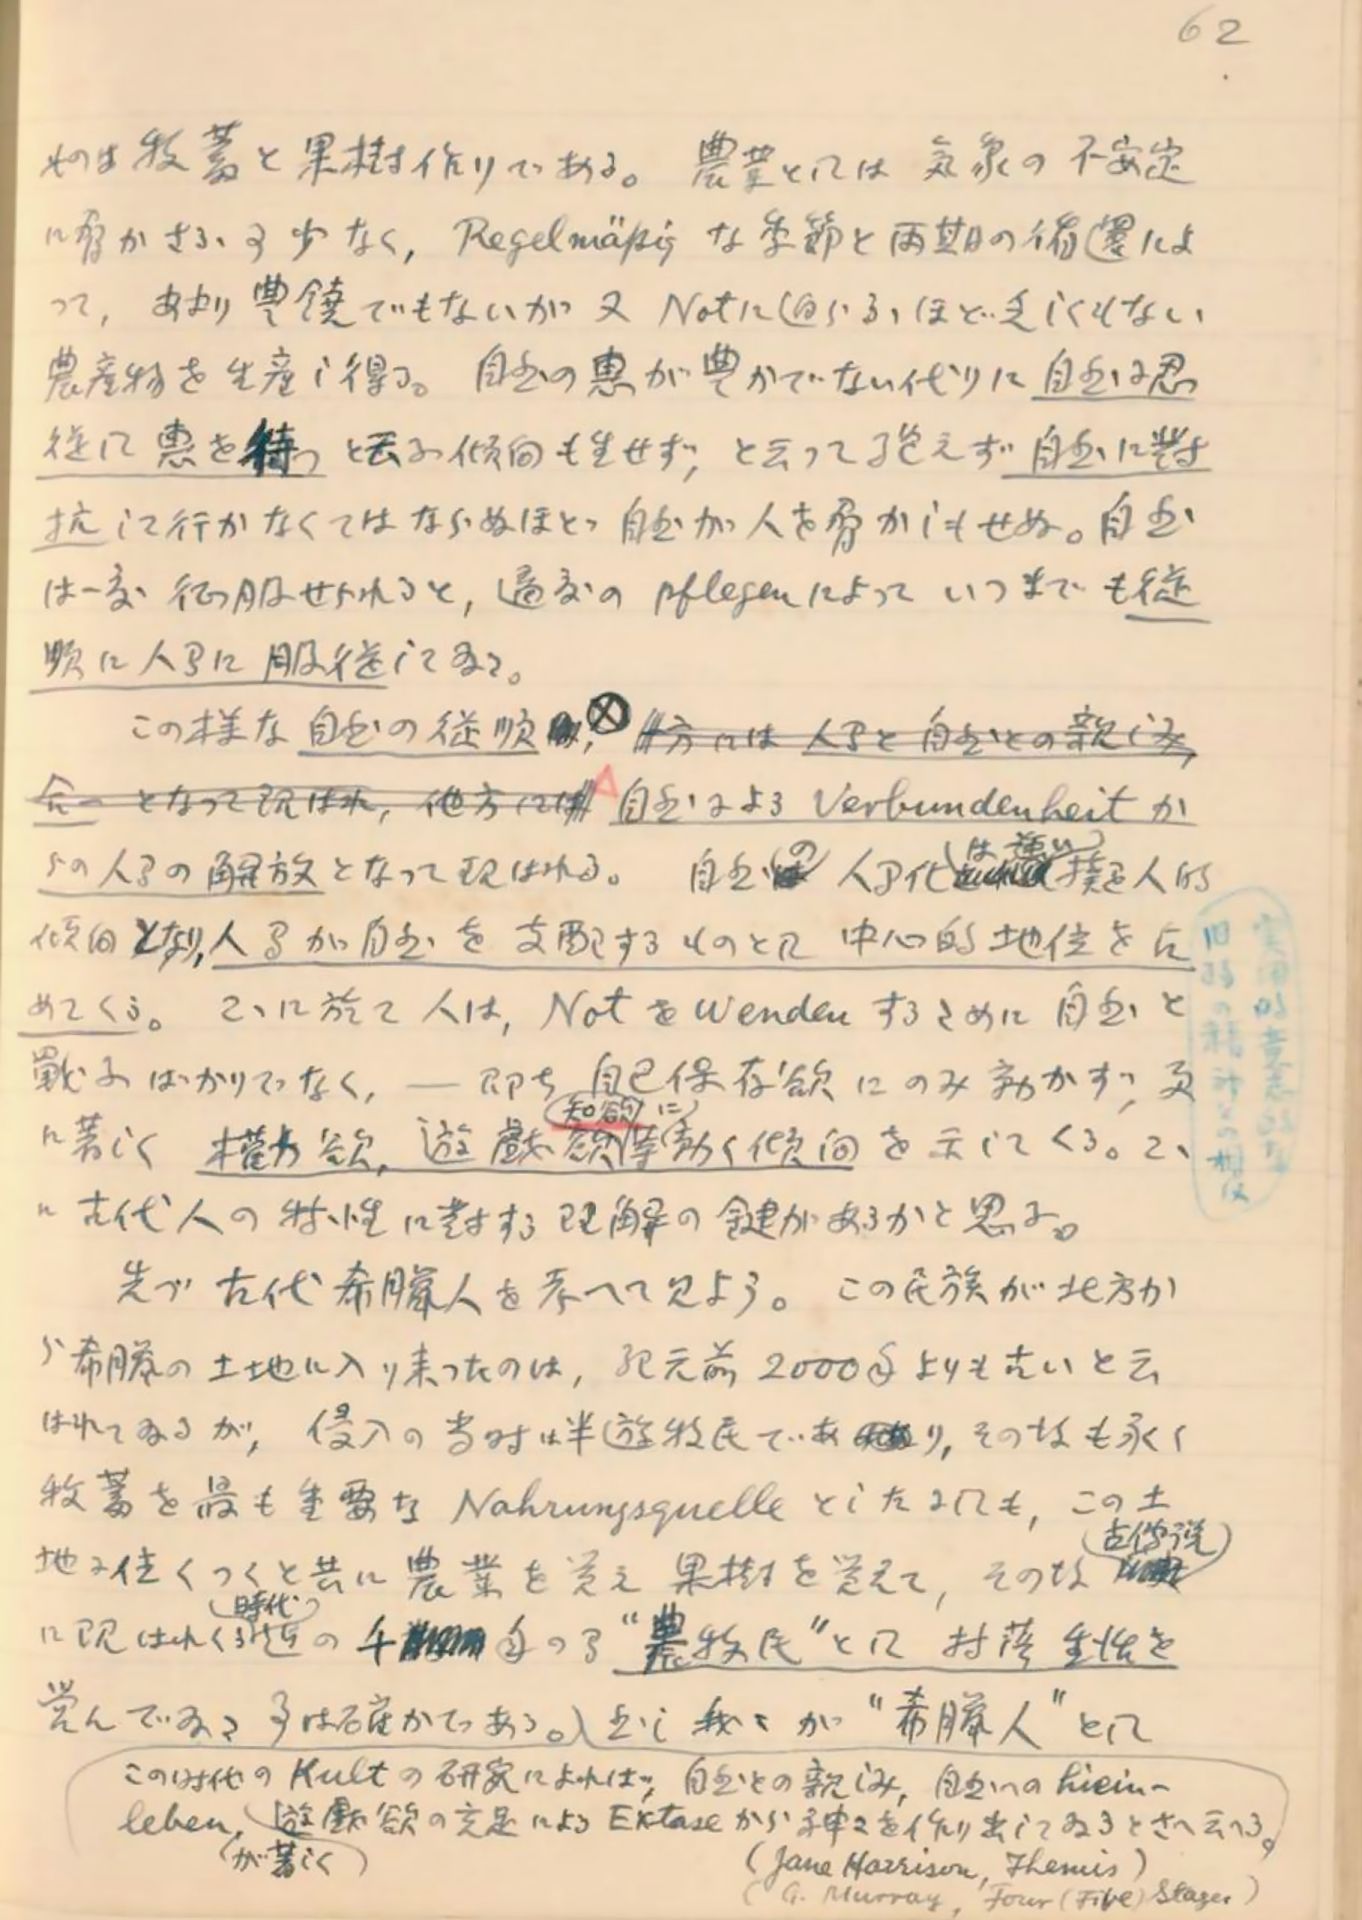 62
ものは牧畜と果樹作りである。 農業としては 気象の 不安定
に脅かさるゝ事少なく, Regelmäßig な季節と雨期の循還によ
って, あまり豊饒でもないが 又 Notに迫らるゝほど乏しくもない
農産物を生産し得る。 自然の恵が豊かでない代りに 自然に忍
従して 恵を待つ と云ふ傾向も生ぜず, と云って絶えず 自然に對
抗して行かなくてはならぬほど 自然が人を脅かしもせぬ。自然
は一度 征服せられると, 適度の pflegenによって いつまでも従
順に人間に服従してゐる。
この様な 自然の従順 ⊗ 方には 人間と自然との親しみ,
となって現はれ, 他方には △ 自然による Verbundenheit か
らの人間の解放となって現はれる。 自然の 人間化は強い 擬人的
傾向となり, 人間が自然を支配するものとして 中心的地位を占
めてくる。 こゝに於て 人は, Not を wenden するために 自然と
戦ふばかりでなく, ― 即ち 自己保存欲にのみ動かず, 更
に著しく 権力欲, 遊戯欲, 知欲等に動く傾向を示してくる。こゝ
に古代人の特性に對する理解の鍵があるかと思ふ。
先づ古代希臘人を考へて見よう。 この民族が北方か
ら希臘の土地に入り来ったのは, 紀元前2000年よりも古いと云
はれてゐるが, 侵入の当時は半遊牧民であり, その故も永く
牧畜を最も重要な Nahrungsquelle としたにしても, この土
地に住みつくと共に農業を覚え果樹を覚えて, その故 古傳説
に現はれくる時代迄の 千年の間 “農牧民”として 村落生活を
営んでゐる事は確かである。 然し 我々が “希臘人” として
この時代の Kult の研究によれば, 自然との親しみ, 自然への hinein-
leben, 遊戯欲の充足による Extase から神々を作り出してゐるとさへ云へる。
が著しく
(Jane Harrison, Themis)
(G. Murray, Four (Five) Stages)
実用的意志的な